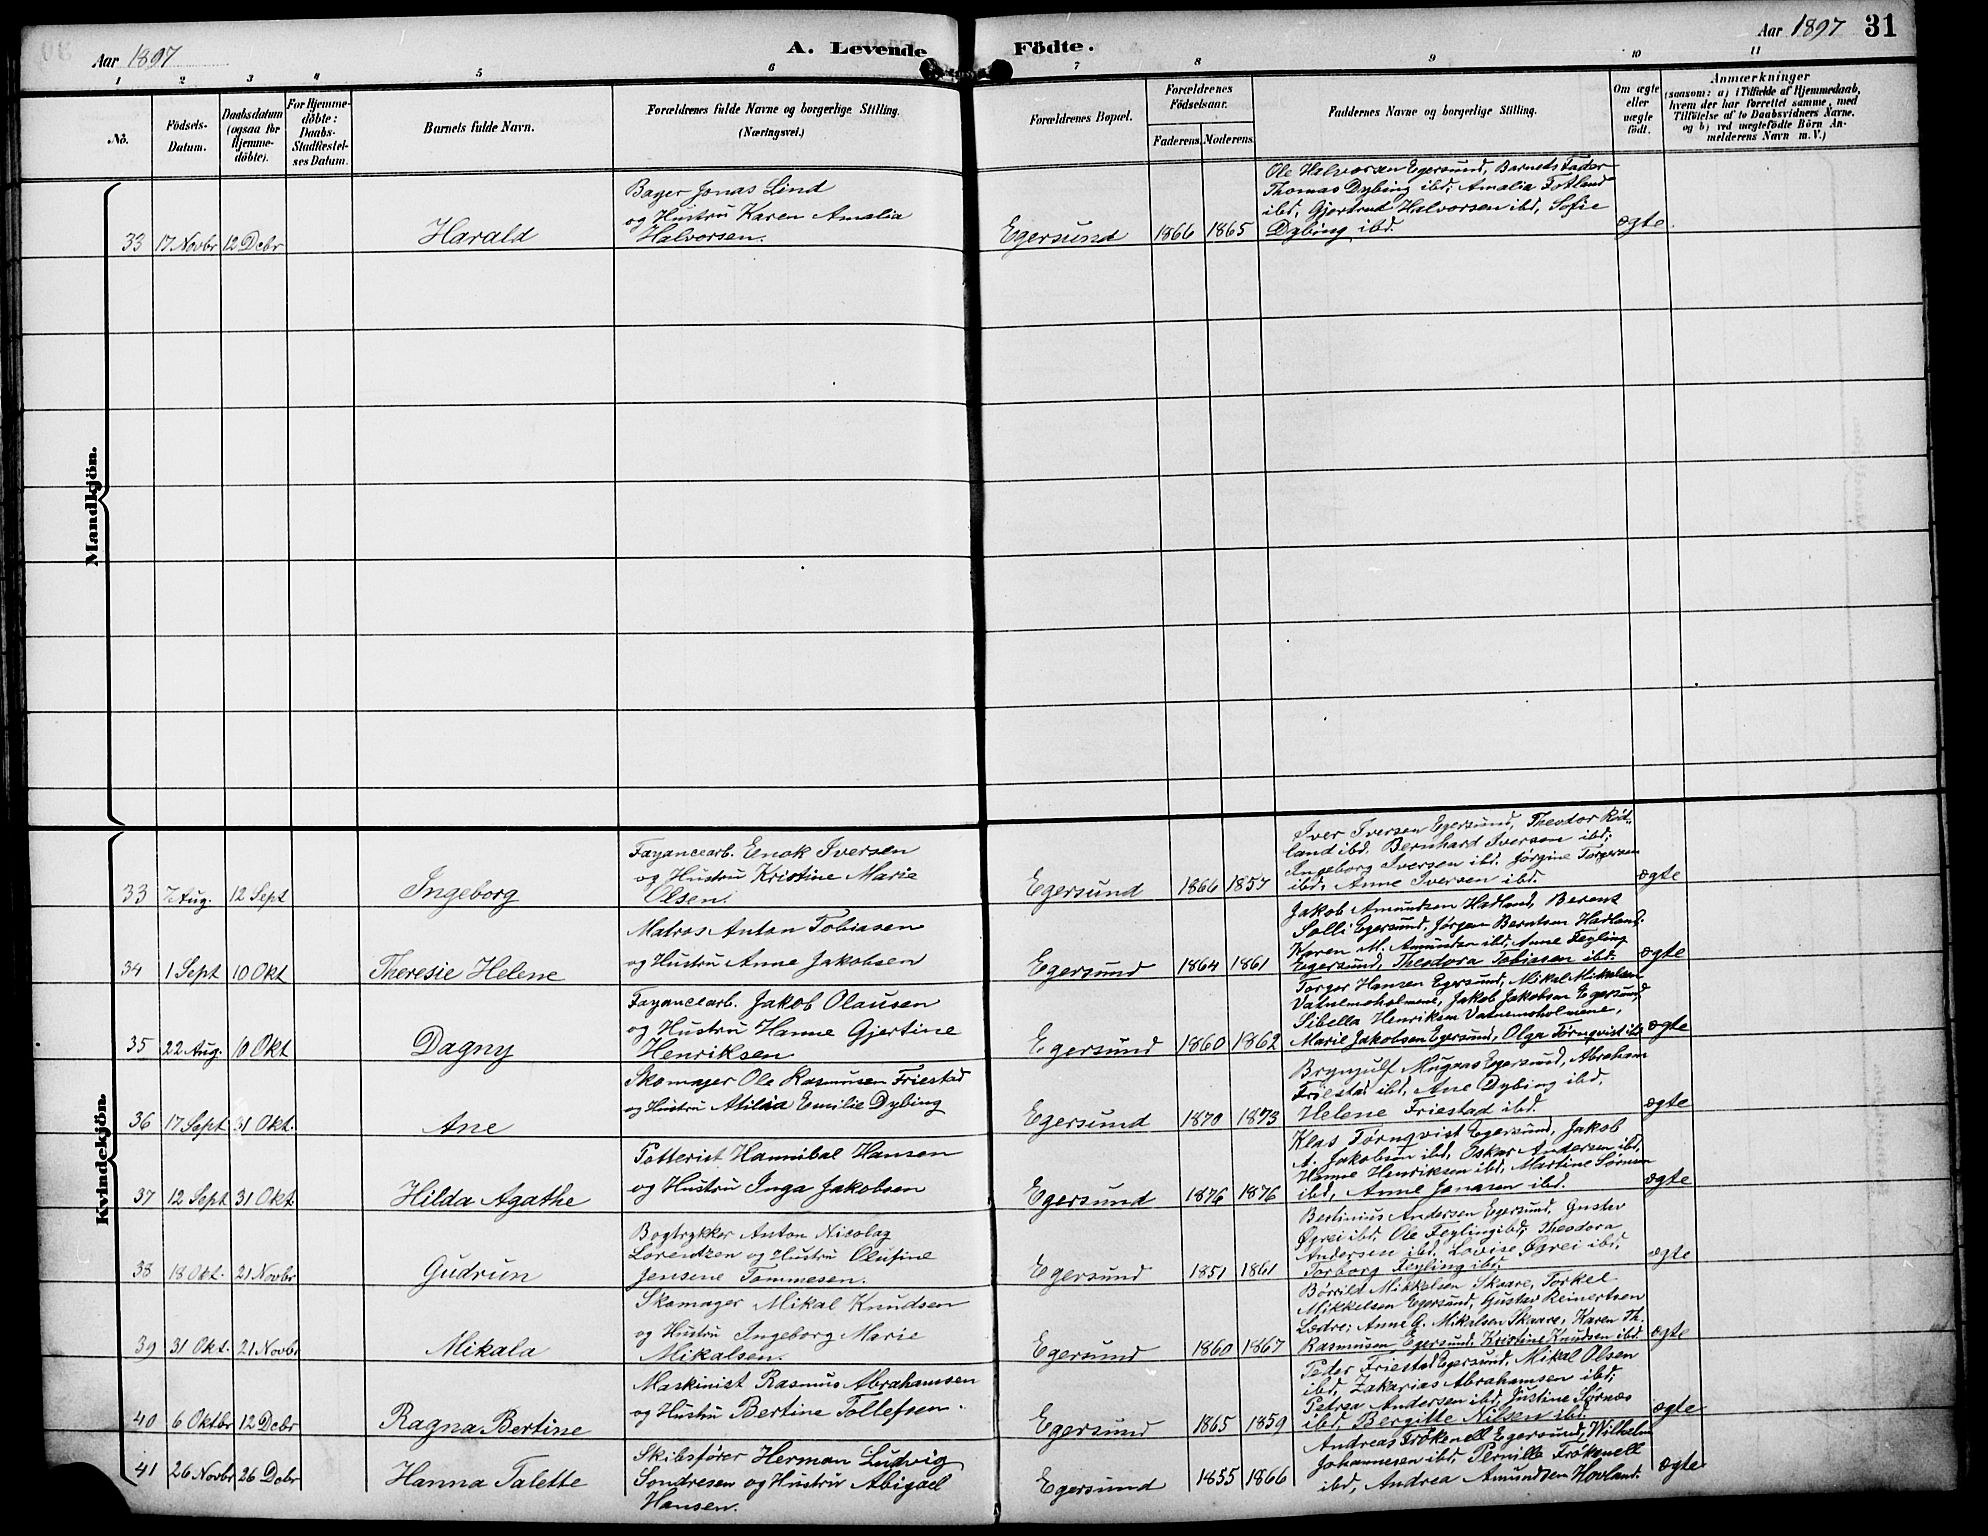 Aar 1897
A. Levende Födte.
Aar 1897 31
1 2 3 4 5 6 7 8 9 10 11
No.
Födsels-Datum.
Daabsdatum (ogsaa for Hjemme-döbte).
For Hjemme-döbte: Daabs-Stadfæstel-ses Datum.
Barnets fulde Navn.
Forældrenes fulde Navne og borgerlige Stilling.
(Næringsvei.)
Forældrenes Bopæl.
Forældrenes Födselsaar.
Faderens. Moderens.
Faddernes Navne og borgerlige Stilling.
Om ægte eller uægte födt.
Anmærkninger
(saasom: a) i Tilfælde af Hjemmedaab,
hvem der har forrettet samme, med
Tilföielse af to Daabsvidners Navne.
og b) ved uægtefödte Börn An-
melderens Navn m. V.)
Mandkjön.
33 17 Novbr 12 Dcbr Harald
Bager Jonas Lind
og Hustru Karen Amalia
Halvorsen.
Egersund 1866 1865
Ole Halvorsen Egersund, Barnets Fader
Thomas Dybing ibd; Amalia Fotland
ibd, Gjertrud Halvorsen ibd, Sofie
Dybing ibd.
ægte
Kvindekjön.
33 7 Aug. 12 Sept Ingeborg
Fayancearb. Enok Iversen
og Hustru Kristine Marie
Olsen.
Egersund 1866 1857
Iver Iversen Egersund, Theodor Rød-
land ibd. Bernhard Iversen ibd;
Ingeborg Iversen ibd. Jørgine Torgersen
ibd, Anne Iversen ibd.
ægte
34 1 Sept 10 Okt Theresie Helene
Matros Anton Tobiasen
og Hustru Anne Jakobsen
Egersund 1864 1861
Jakob Amundsen Hadland, Berent
Solli Egersund, Jørgen Berntsen Hadland.
Karen M. Amundsen ibd, Anne Feyling
Egersund, Theodora Tobiasen ibd.
ægte
35 22 Aug. 10 Okt Dagny
Fayancearb. Jakob Olausen
og Hustru Hanne Gjertine
Henriksen
Egersund 1860 1862
Torger Hansen Egersund, Mikal Mikalsen
Vatnemoholmene, Jakob Jakobsen Egersund,
Sibella Henriksen Vatnemoholmene,
Marie Jakobsen Egersund, Olga Tørnqvist ibd
ægte
36 17 Sept 31 Okt. Ane
Skomager Ole Rasmusen Friestad
og Hustru Atilia Emilie Dybing
Egersund 1870 1873
Brynjulf Mugaas Egersund, Abraham
Friestad ibd, Ane Dybing ibd,
Helene Friestad ibd.
ægte
37 12 Sept 31 Okt Hilda Agathe
Potterist Hannibal Hansen
og Hustru Inga Jakobsen
Egersund 1876 1876
Klas Tørnqvist Egersund, Jakob
A. Jakobsen ibd, Oskar Andersen ibd,
Hanne Henriksen ibd, Martine Sørnsen
ibd, Anne Jonasen ibd.
ægte
38 18 Okt. 21 Novbr Gudrun
Bogtrykker Anton Nicolay
Lorentzen og Hustru Olufine
Jensene Tommesen.
Egersund 1851 1861
Bertinius Andersen Egersund, Gustav
Øgrei ibd, Ole Feyling ibd, Theodora
Andersen ibd. Lovise Øgrei ibd,
Torborg Feyling ibd.
ægte
39 31 Okt. 21 Novbr Mikala
Skomager Mikal Knudsen
og Hustru Ingeborg Marie
Mikalsen.
Egersund 1860 1867
Børrild Mikkelsen Skaare, Torkel
Mikkelsen Egersund, Gustav Reinertsen
Lædre; Anne G. Mikalsen Skaare, Karen Th.
Rasmusen Egersund. Kristine Knudsen ibd.
ægte
40 6 Oktbr 12 Dcbr Ragna Bertine
Maskinist Rasmus Abrahamsen
og Hustru Bertine Tollefsen.
Egersund 1865 1859
Peder Friestad Egersund, Mikal Olsen
ibd, Zakarias Abrahamsen ibd;
Petrea Andersen ibd, Justine Sørnæs
ibd, Bergitte Nilsen ibd.
ægte
41 26 Novbr 26 Dcbr Hanna Talette
Skibsfører Herman Ludvig
Sondresen og Hustru Abigael
Hansen.
Egersund 1855 1866
Andreas Frøkenell Egersund, Wilhelm
Johannesen ibd, Pernille Frøkenell
ibd, Andrea Amundsen Hovland.
ægte